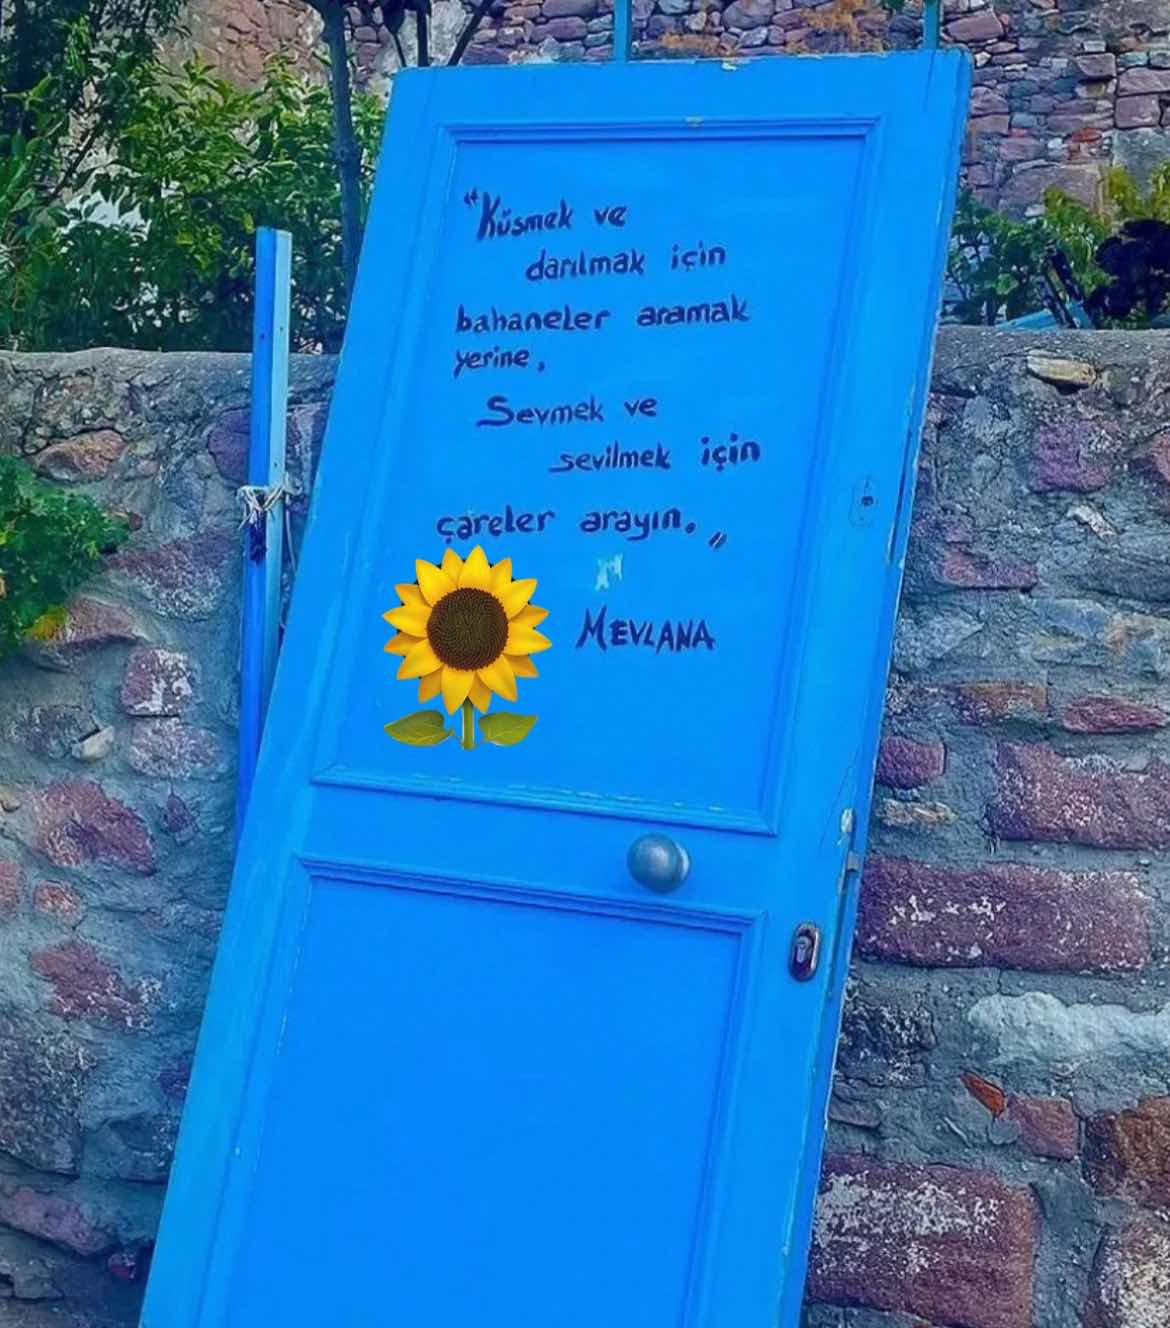 "Küsmek ve
darılmak için
bahaneler aramak
yerine,
Sevmek ve
sevilmek için
çareler arayın."
MEVLANA